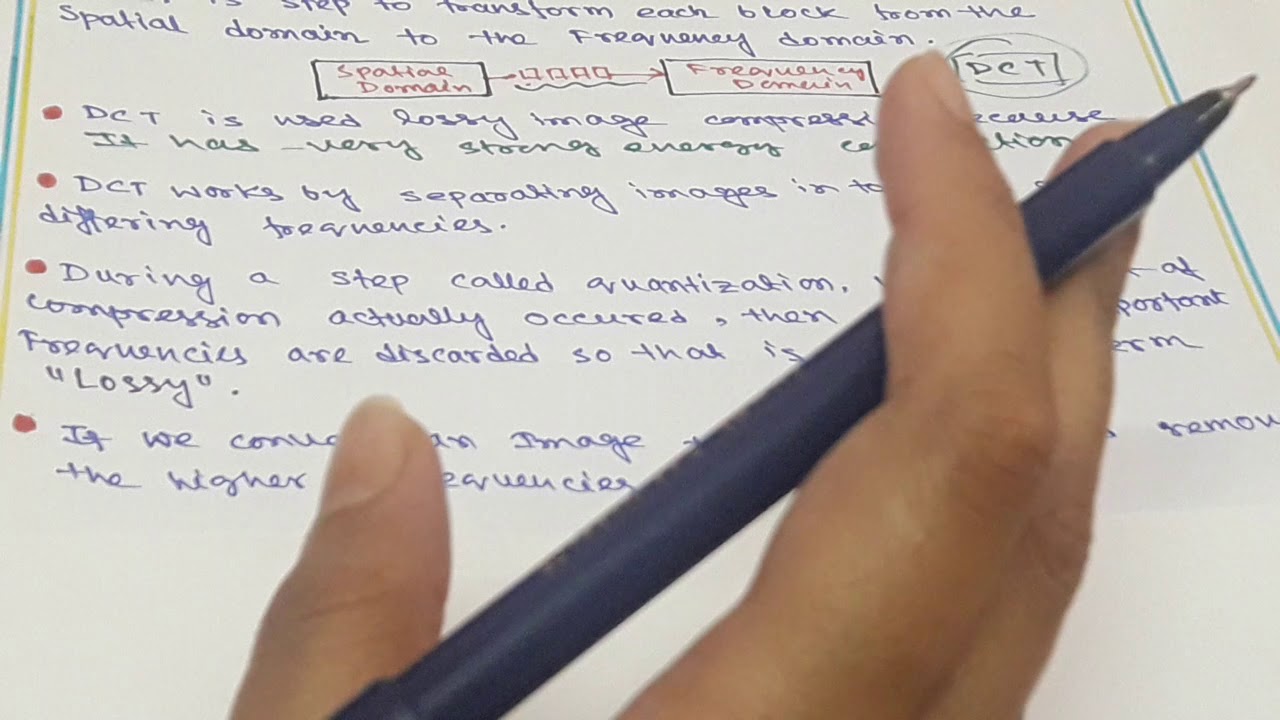 is step to transform each block from the
Spatial domain to the Frequency domain.
Spatial Domain
Frequency Domain
DCT
DCT is used lossy image compress
It has very strong energy
DCT works by separating images in to
differing frequencies.
During a step called quantization, at
compression actually occured, then
Frequencies are discarded so that is
"Lossy".
If we an Image remov
the higher